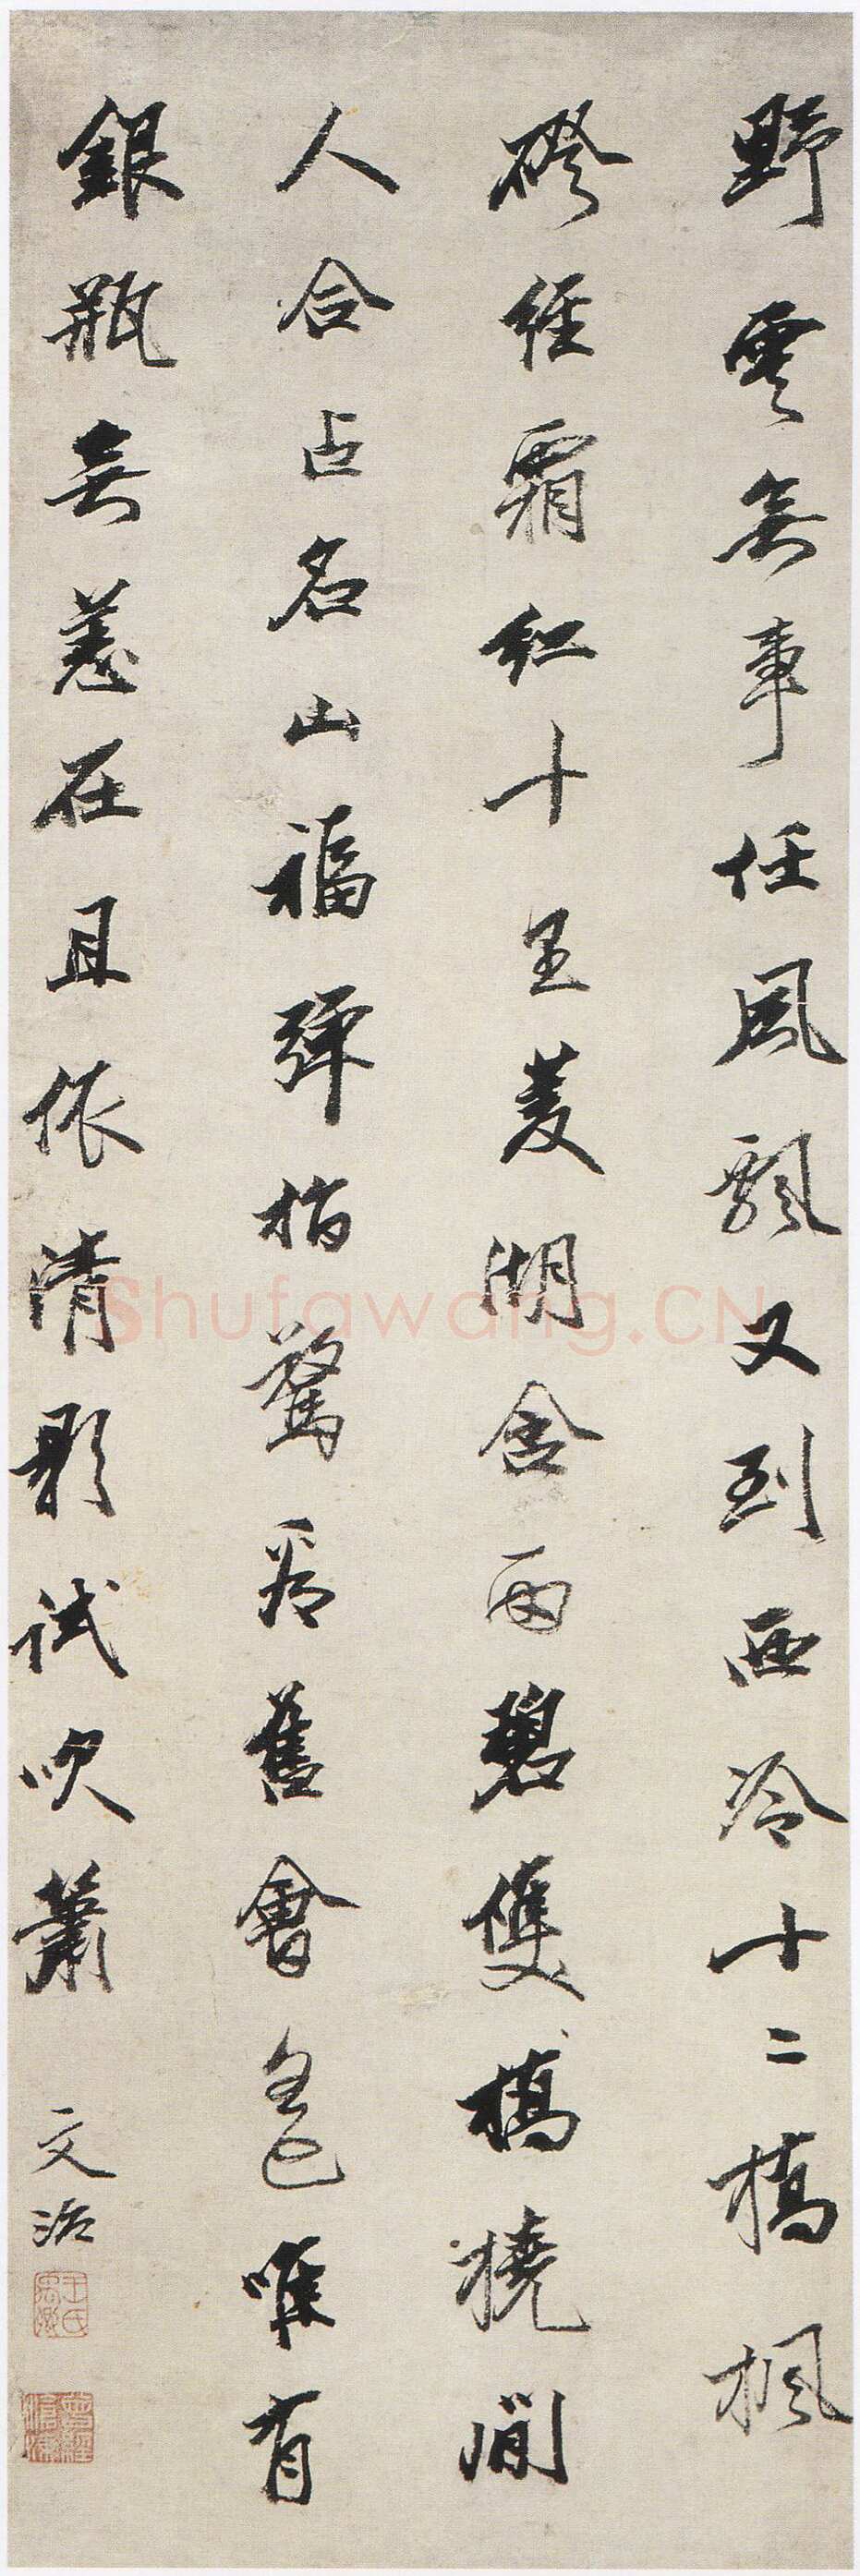 野雲無事任風飄又到西泠十二橋楓
磴經霜紅十里菱湖含雨碧雙橋橈閒
人合占名山福彈指驚看舊會遙唯有
銀瓶無恙在且依清影試吹簫
文治
王氏禹卿
曾經滄海
Shufawang.CN